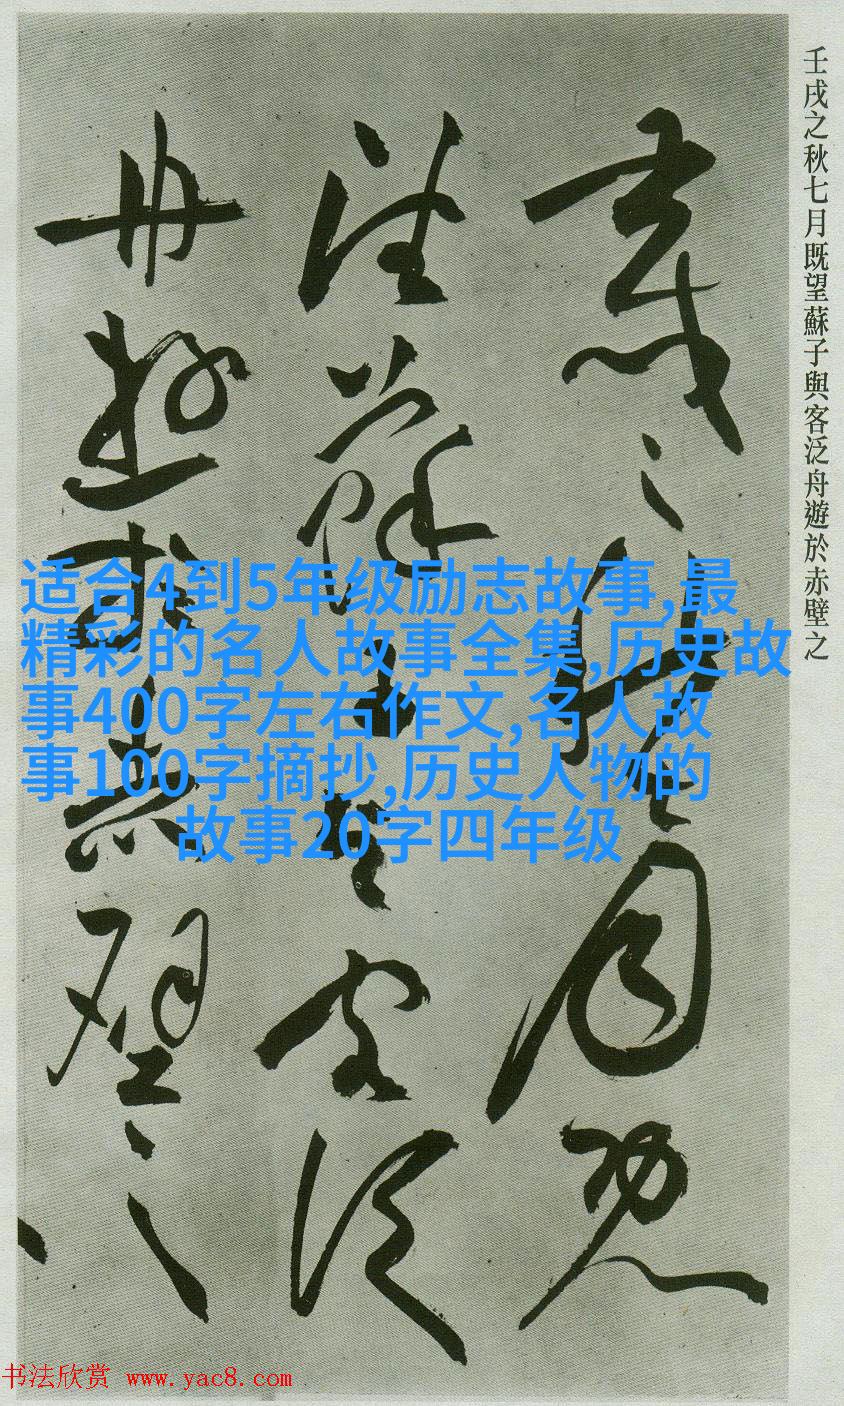 壬戌之秋七月既望蘇子與客泛舟遊於赤壁之
壬戌之秋七月既
望蘇子與客泛
舟遊於赤壁之
适合4到5年级励志故事,最
精彩的名人故事全集,历史故
事400字左右作文,名人故
事100字摘抄,历史人物的
故事20字四年级
书法欣赏 www.yac8.com